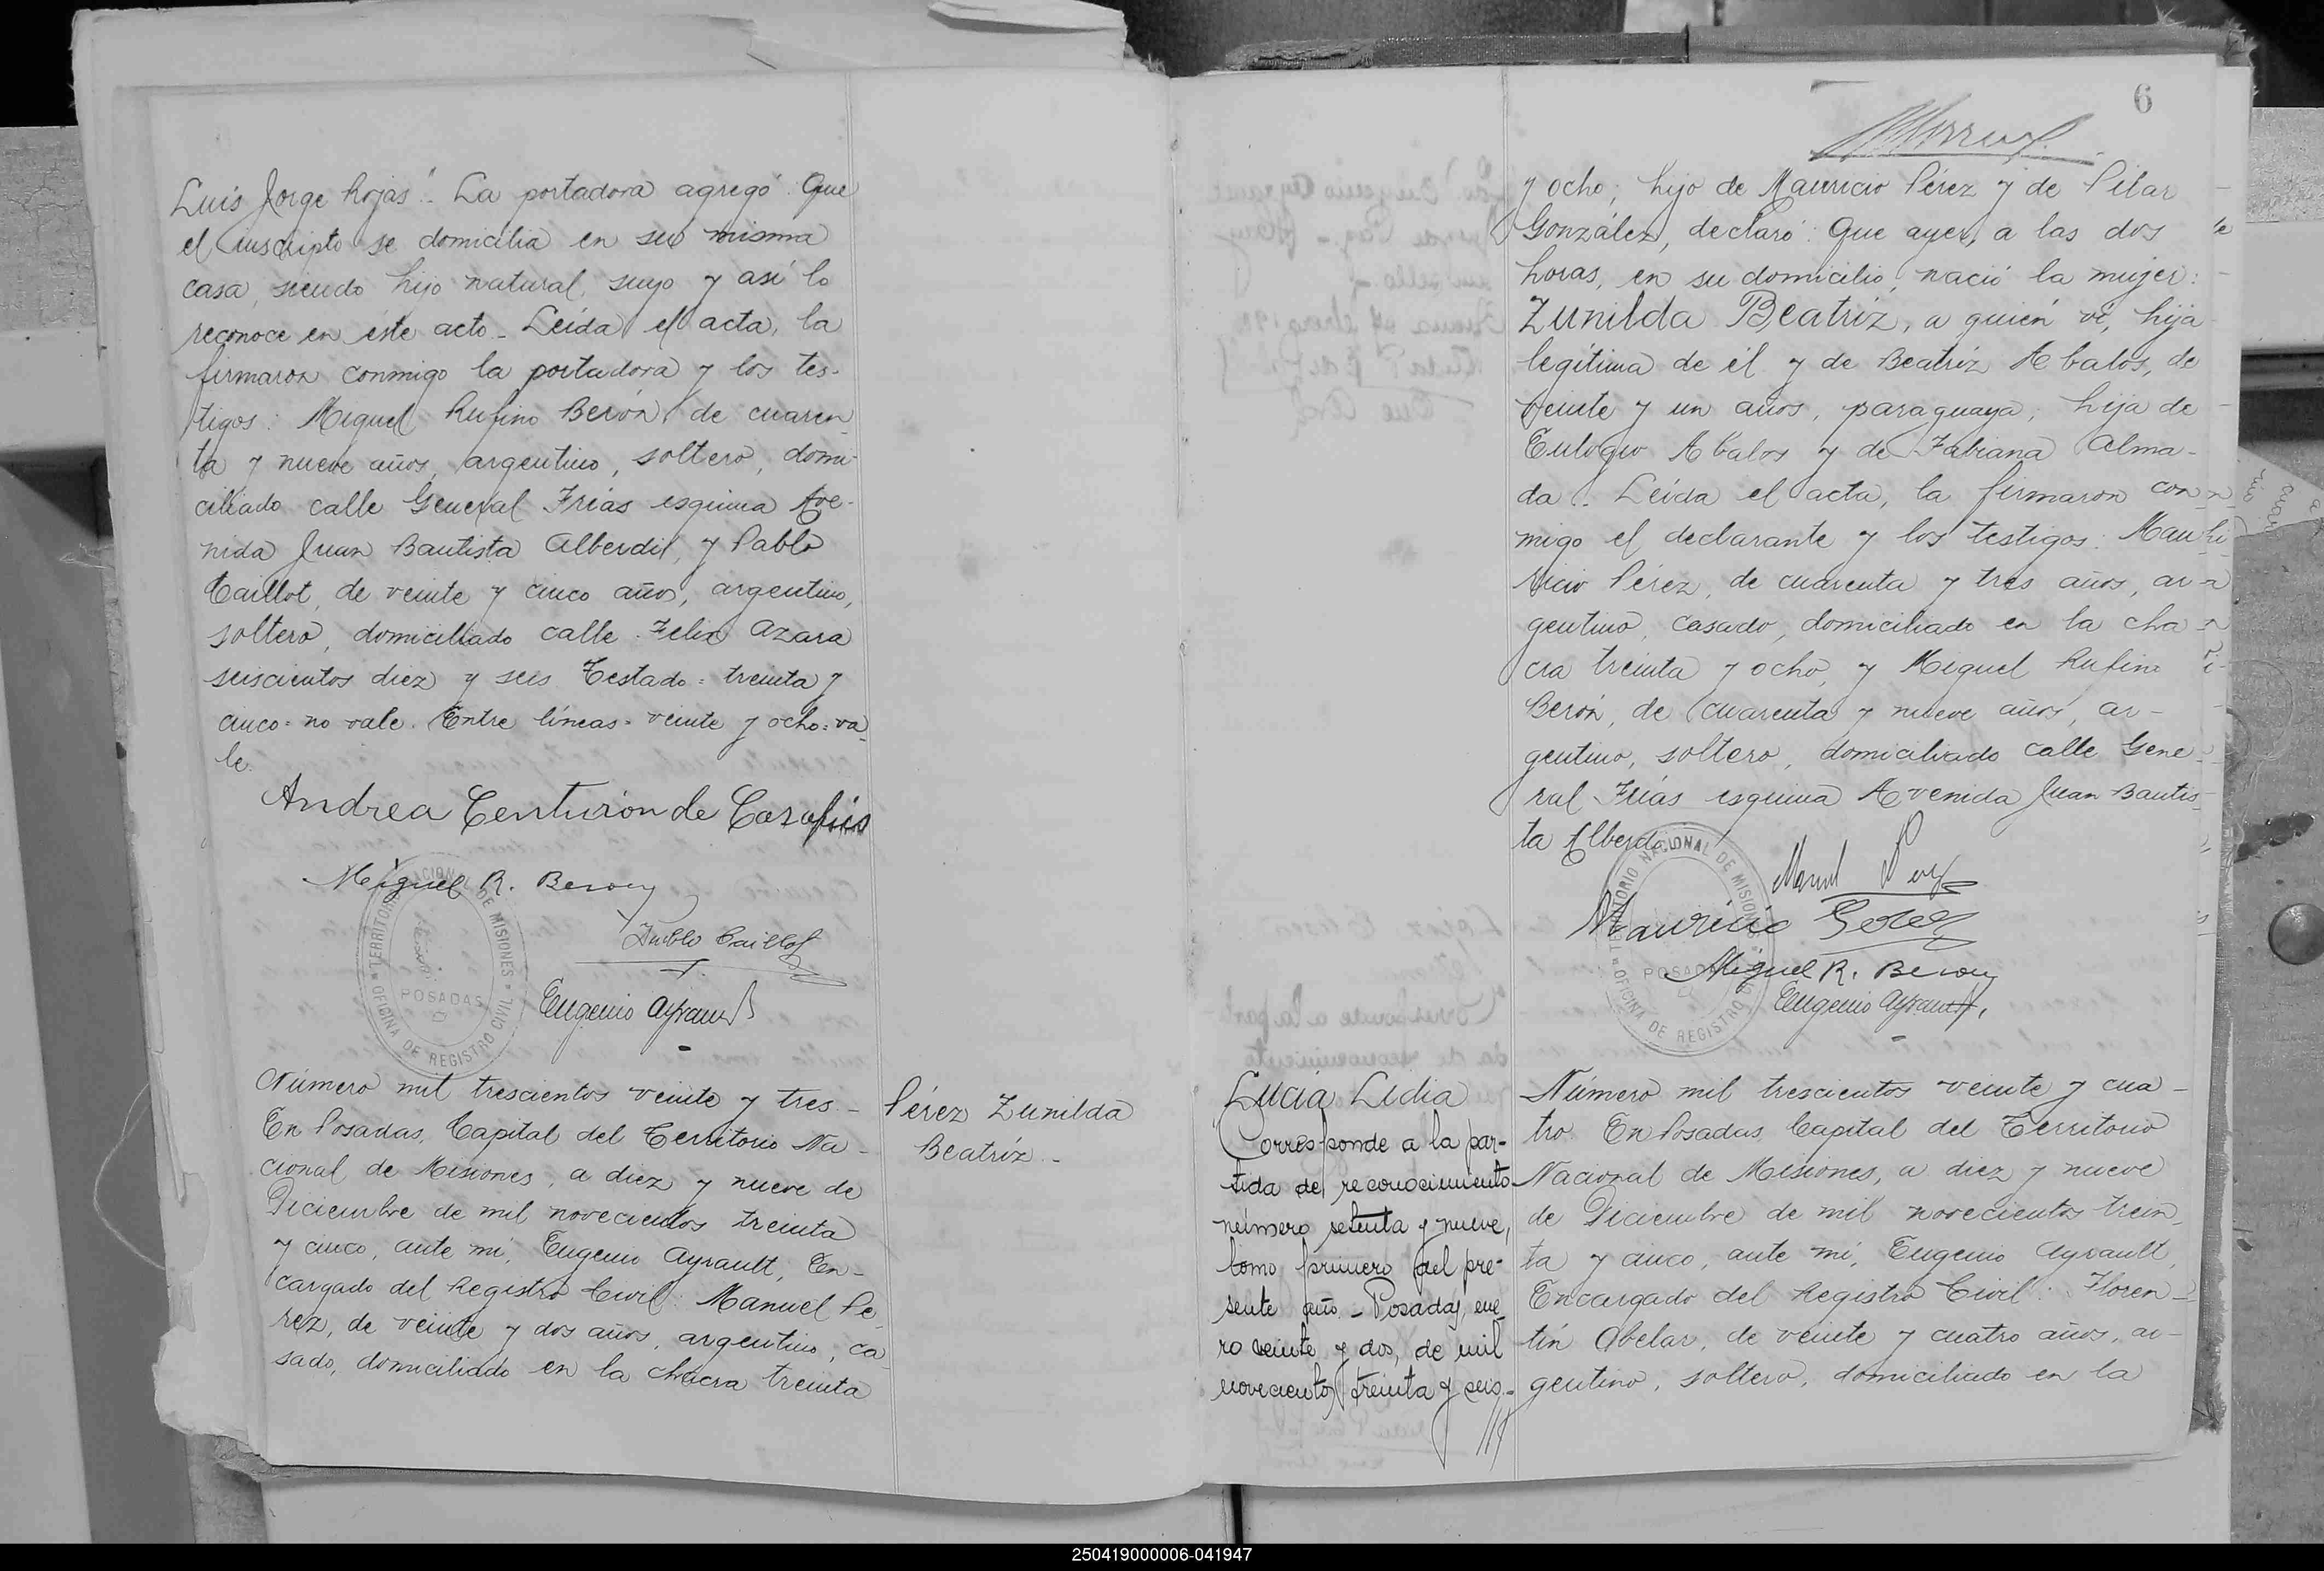 Luis Jorge Rojas". La portadora agregó: Que
el inscripto se domicilia en su misma
casa, siendo hijo natural suyo y así lo
reconoce en éste acto_ Leída el acta, la
firmaron conmigo la portadora y los tes-
tigos: Miguel Rufino Berón, de cuaren-
ta y nueve años, argentino, soltero, domi-
ciliado calle General Frías esquina Ave-
nida Juan Bautista Alberdi, y Pablo
Caillot, de veinte y cinco años, argentino,
soltero, domiciliado calle Felix Azara
seiscientos diez y seis Testado = treinta y
cinco = no vale. Entre líneas = veinte y ocho = va
le.
Andrea Centurión de
Miguel R. Berón
Pablo Caillot
Eugenio Ayrault
TERRITORIO NACIONAL DE MISIONES
POSADAS
OFICINA DE REGISTRO CIVIL
Número mil trescientos veinte y tres_
En Posadas, Capital del Territorio Na-
cional de Misiones, a diez y nueve de
Diciembre de mil novecientos treinta
y cinco, ante mí, Eugenio Ayrault, En-
cargado del Registro Civil: Manuel Pé
rez, de veinte y dos años, argentino, ca
sado, domiciliado en la chacra treinta
Pérez Zunilda
Beatríz_
6
y ocho; hijo de Mauricio Pérez y de Pilar
González, declaró: Que ayer, a las dos
horas, en su domicilio, nació la mujer:
Zunilda Beatríz, a quién ví, hija
legítima de él y de Beatríz Abalos, de
veinte y un años, paraguaya; hija de
Eulogio Abalos y de Fabiana Alma-
da. Leída el acta, la firmaron con-
migo el declarante y los testigos: Mau-
ricio Pérez, de cuarenta y tres años, ar-
gentino, casado, domiciliado en la cha-
cra treinta y ocho, y Miguel Rufino
Berón, de cuarenta y nueve años, ar-
gentino, soltero, domiciliado calle Gene-
ral Frías esquina Avenida Juan Bautis-
ta Alberdi.
Manuel Perez
Mauricio Perez
Miguel R. Berón
Eugenio Ayrault
TERRITORIO NACIONAL DE MISIONES
POSADAS
OFICINA DE REGISTRO CIVIL
Lucía Lidia
Corresponde a la par-
tida de reconocimiento
número setenta y nueve,
tomo primero del pre-
sente año_ Posadas, ene-
ro veinte y dos, de mil
novecientos treinta y seis.-
Número mil trescientos veinte y cua-
tro. En Posadas, Capital del Territorio
Nacional de Misiones, a diez y nueve
de Diciembre de mil novecientos trein-
ta y cinco, ante mí, Eugenio Ayrault,
Encargado del Registro Civil: Floren-
tín Abelar, de veinte y cuatro años, ar-
gentino, soltero, domiciliado en la
250419000006-041947